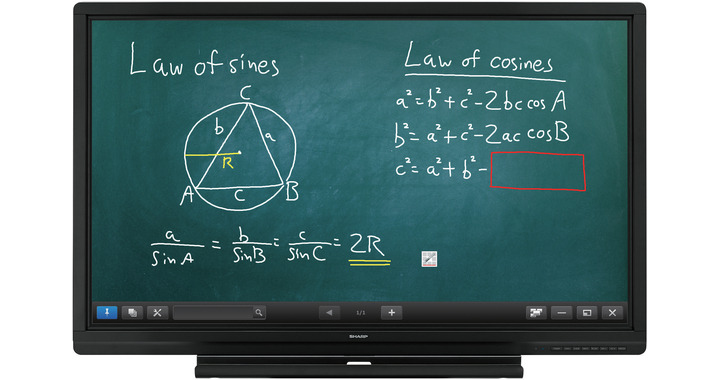 Law of sines
C
b
a
R
A
c
B
a/sinA = b/sinB = c/sinC = 2R
Law of cosines
a² = b² + c² - 2bc cos A
b² = a² + c² - 2ac cosB
c² = a² + b² -
1/1
SHARP